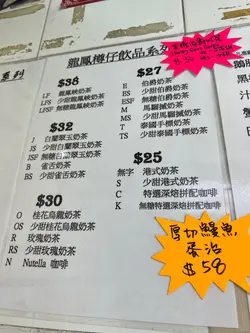 龍鳳樽仔飲品系列
系列
$38
LF 龍鳳峽奶茶
LFS 少甜龍鳳峽奶茶
LSF 無糖龍鳳峽奶茶
$32
J 白蘭翠玉奶茶
JS 少甜白蘭翠玉奶茶
JSF 無糖白蘭翠玉奶茶
B 雀舌奶茶
BS 少甜雀舌奶茶
$30
O 桂花烏龍奶茶
OS 少甜桂花烏龍奶茶
R 玫瑰奶茶
RS 少甜玫瑰奶茶
N Nutella 咖啡
$27
E 伯爵奶茶
ES 少甜伯爵奶茶
ESF 無糖伯爵奶茶
M 馬騮搣奶茶
MS 少甜馬騮搣奶茶
T 泰國手標奶茶
TS 少甜泰國手標奶茶
$25
無字 港式奶茶
S 少甜港式奶茶
C 特選深焙拼配咖啡
K 無糖特選深焙拼配咖啡
厚切鰻魚
蛋治
$58